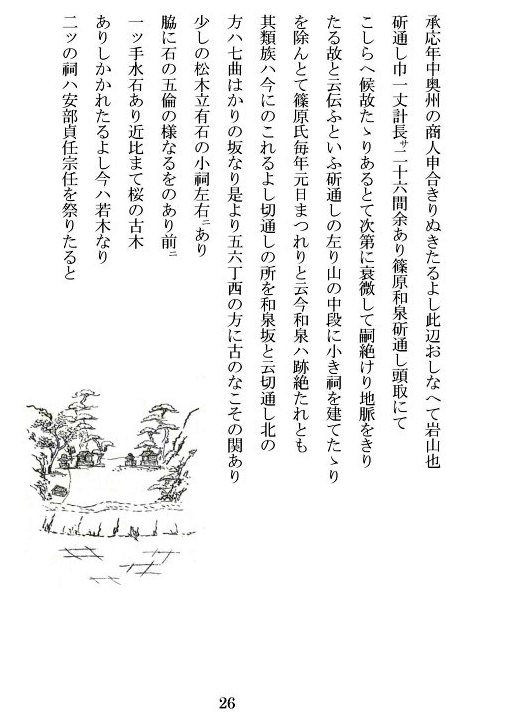 承応年中奥州の商人申合きりぬきたるよし此辺おしなへて岩山也
斫通し巾一丈計長サ二十六間余あり篠原和泉斫通し頭取にて
こしらへ候故たゝりあるとて次第に衰微して嗣絶けり地脈をきり
たる故と云伝ふといふ斫通しの左り山の中段に小き祠を建てたゝり
を除んとて篠原氏毎年元日まつれりと云今和泉ハ跡絶たれとも
其類族ハ今にのこれるよし切通しの所を和泉坂と云切通し北の
方ハ七曲はかりの坂なり是より五六丁西の方に古のなこその関あり
少しの松木立有石の小祠左右ニあり
脇に石の五倫の様なるをのあり前ニ
一ッ手水石あり近比まて桜の古木
ありしかかれたるよし今ハ若木なり
二ッの祠ハ安部貞任宗任を祭りたると
26